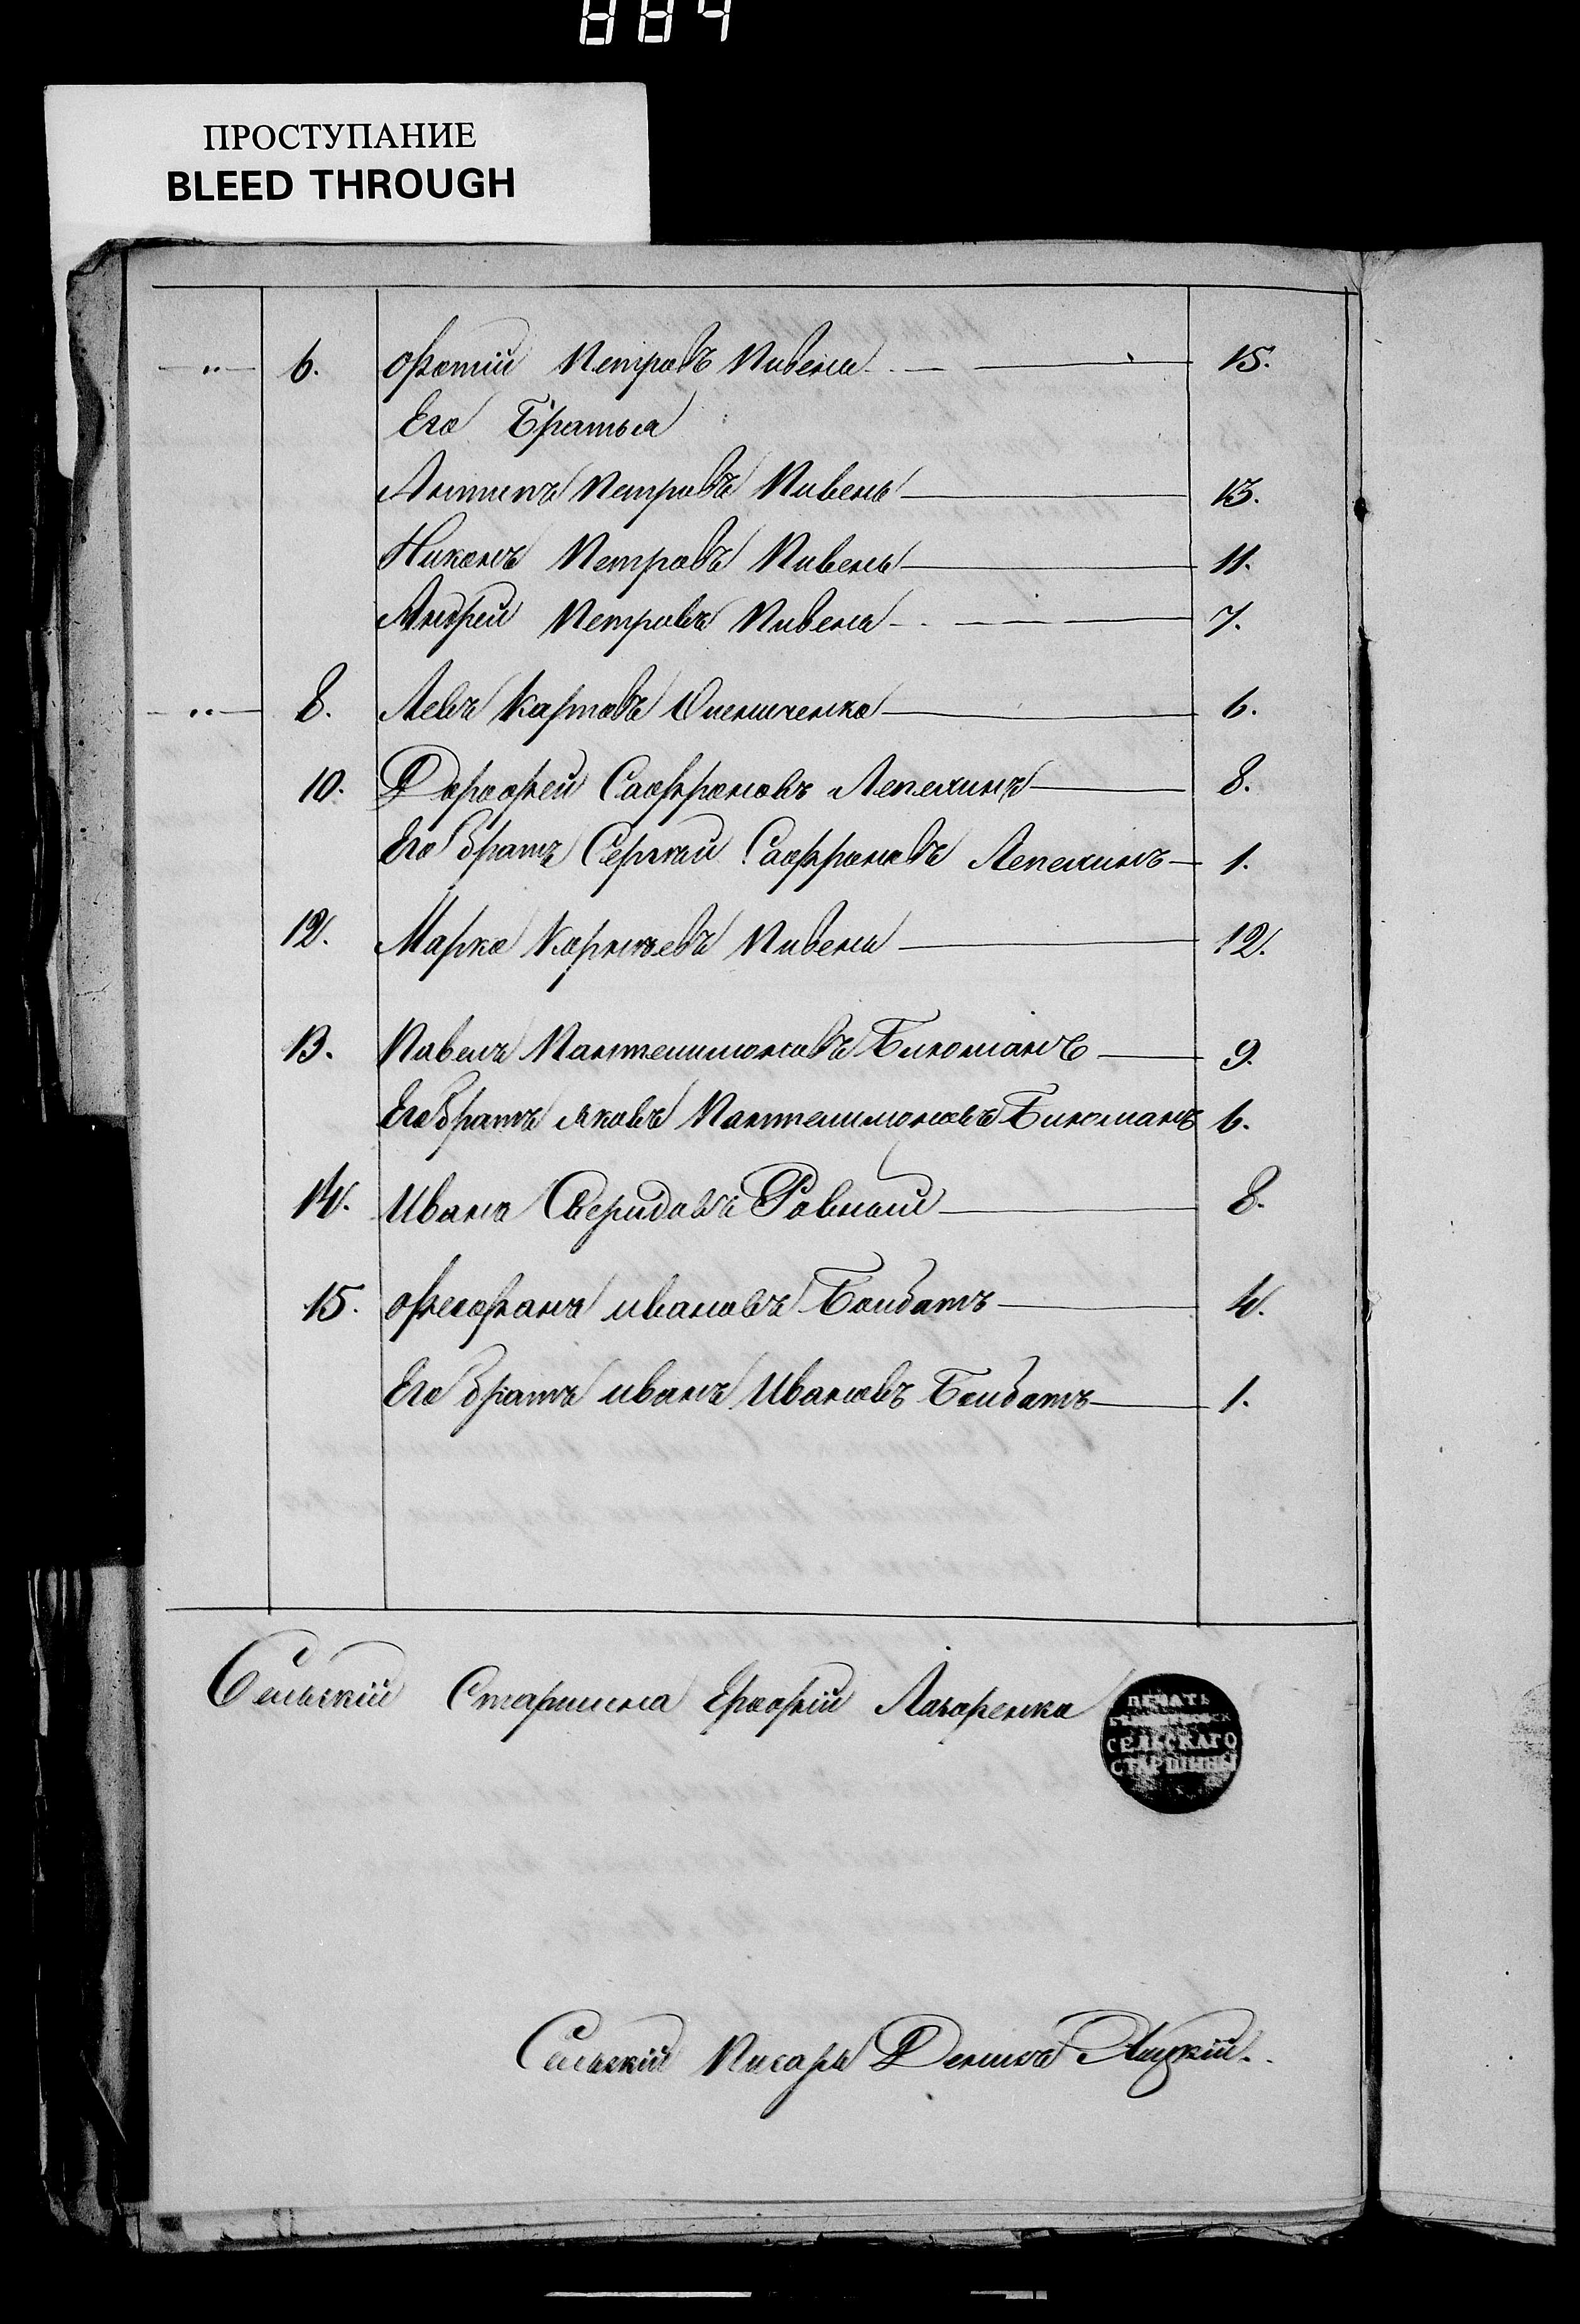 884
ПРОСТУПАНИЕ
BLEED THROUGH
— " — 6. Фотій Петровъ Пивень 15.
Его Братья
Антипъ Петровъ Пивень 13.
Никонъ Петровъ Пивень 11.
Андрей Петровъ Пивень 7.
— " — 8. Левъ Карповъ Онищенко 6.
10. Дорофей Сафроновъ Лепехинъ 8.
Его братъ Сергѣй Сафроновъ Лепехинъ 1.
12. Марко Корнѣевъ Пивень 12.
13. Павелъ Пантелимоновъ 9.
Его братъ Яковъ Пантелимоновъ 6.
14. Иванъ Свиридовъ Ровный 8.
15. Феофанъ Ивановъ Бойдатъ 4.
Его братъ Иванъ Ивановъ Бойдатъ 1.
Сельскій Старшина Ерофѣй Лазоренко
ПЕЧАТЬ
СЕЛЬСКАГО
СТАРШИНЫ
Сельскій Писарь